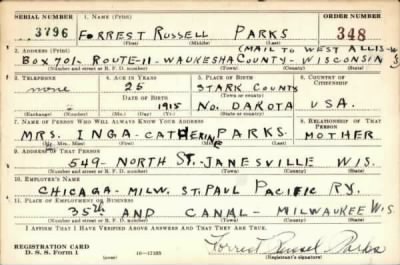 SERIAL NUMBER 1. NAME (Print) ORDER NUMBER
3796 FORREST RUSSELL PARKS 348
(First) (Middle) (Last)
2. ADDRESS (Print) (MAIL TO WEST ALLIS-W
BOX 701- ROUTE-11- WAUKESHA COUNTY- WISCONSIN
(Number and street or R. F. D. number) (Town) (County) (State)
3. TELEPHONE 4. AGE IN YEARS 5. PLACE OF BIRTH 6. COUNTRY OF CITIZENSHIP
none 25 STARK COUNTY
DATE OF BIRTH (Town or county)
1915 NO. DAKOTA USA.
(Exchange) (Number) (Mo.) (Day) (Yr.) (State or country)
7. NAME OF PERSON WHO WILL ALWAYS KNOW YOUR ADDRESS 8. RELATIONSHIP OF THAT PERSON
MRS. INGA- CATHERINE PARKS MOTHER
(Mr., Mrs., Miss) (First) (Middle) (Last)
9. ADDRESS OF THAT PERSON
549- NORTH ST.- JANESVILLE WIS.
(Number and street or R. F. D. number) (Town) (County) (State)
10. EMPLOYER'S NAME
CHICAGA- MILW. ST. PAUL PACIFIC RY.
11. PLACE OF EMPLOYMENT OR BUSINESS
35th AND CANAL- MILWAUKEE WIS.
(Number and street or R. F. D. number) (Town) (County) (State)
I AFFIRM THAT I HAVE VERIFIED ABOVE ANSWERS AND THAT THEY ARE TRUE.
REGISTRATION CARD
D. S. S. Form 1 (over) 16-17105 Forrest Russel Parks
(Registrant's signature)